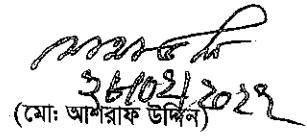 ২৮/০২/২০২২
(মো: আশরাফ উদ্দিন)